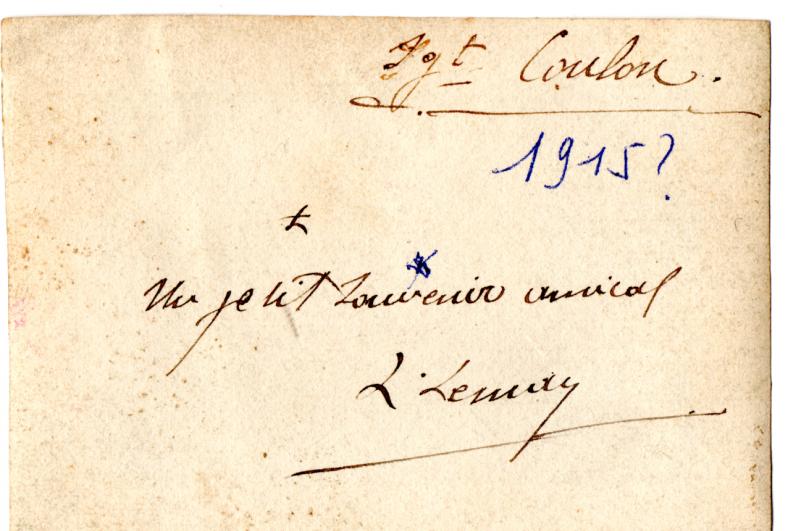 Sgt Coulon.
1915?
t
Un petit souvenir amical
L. Lemay